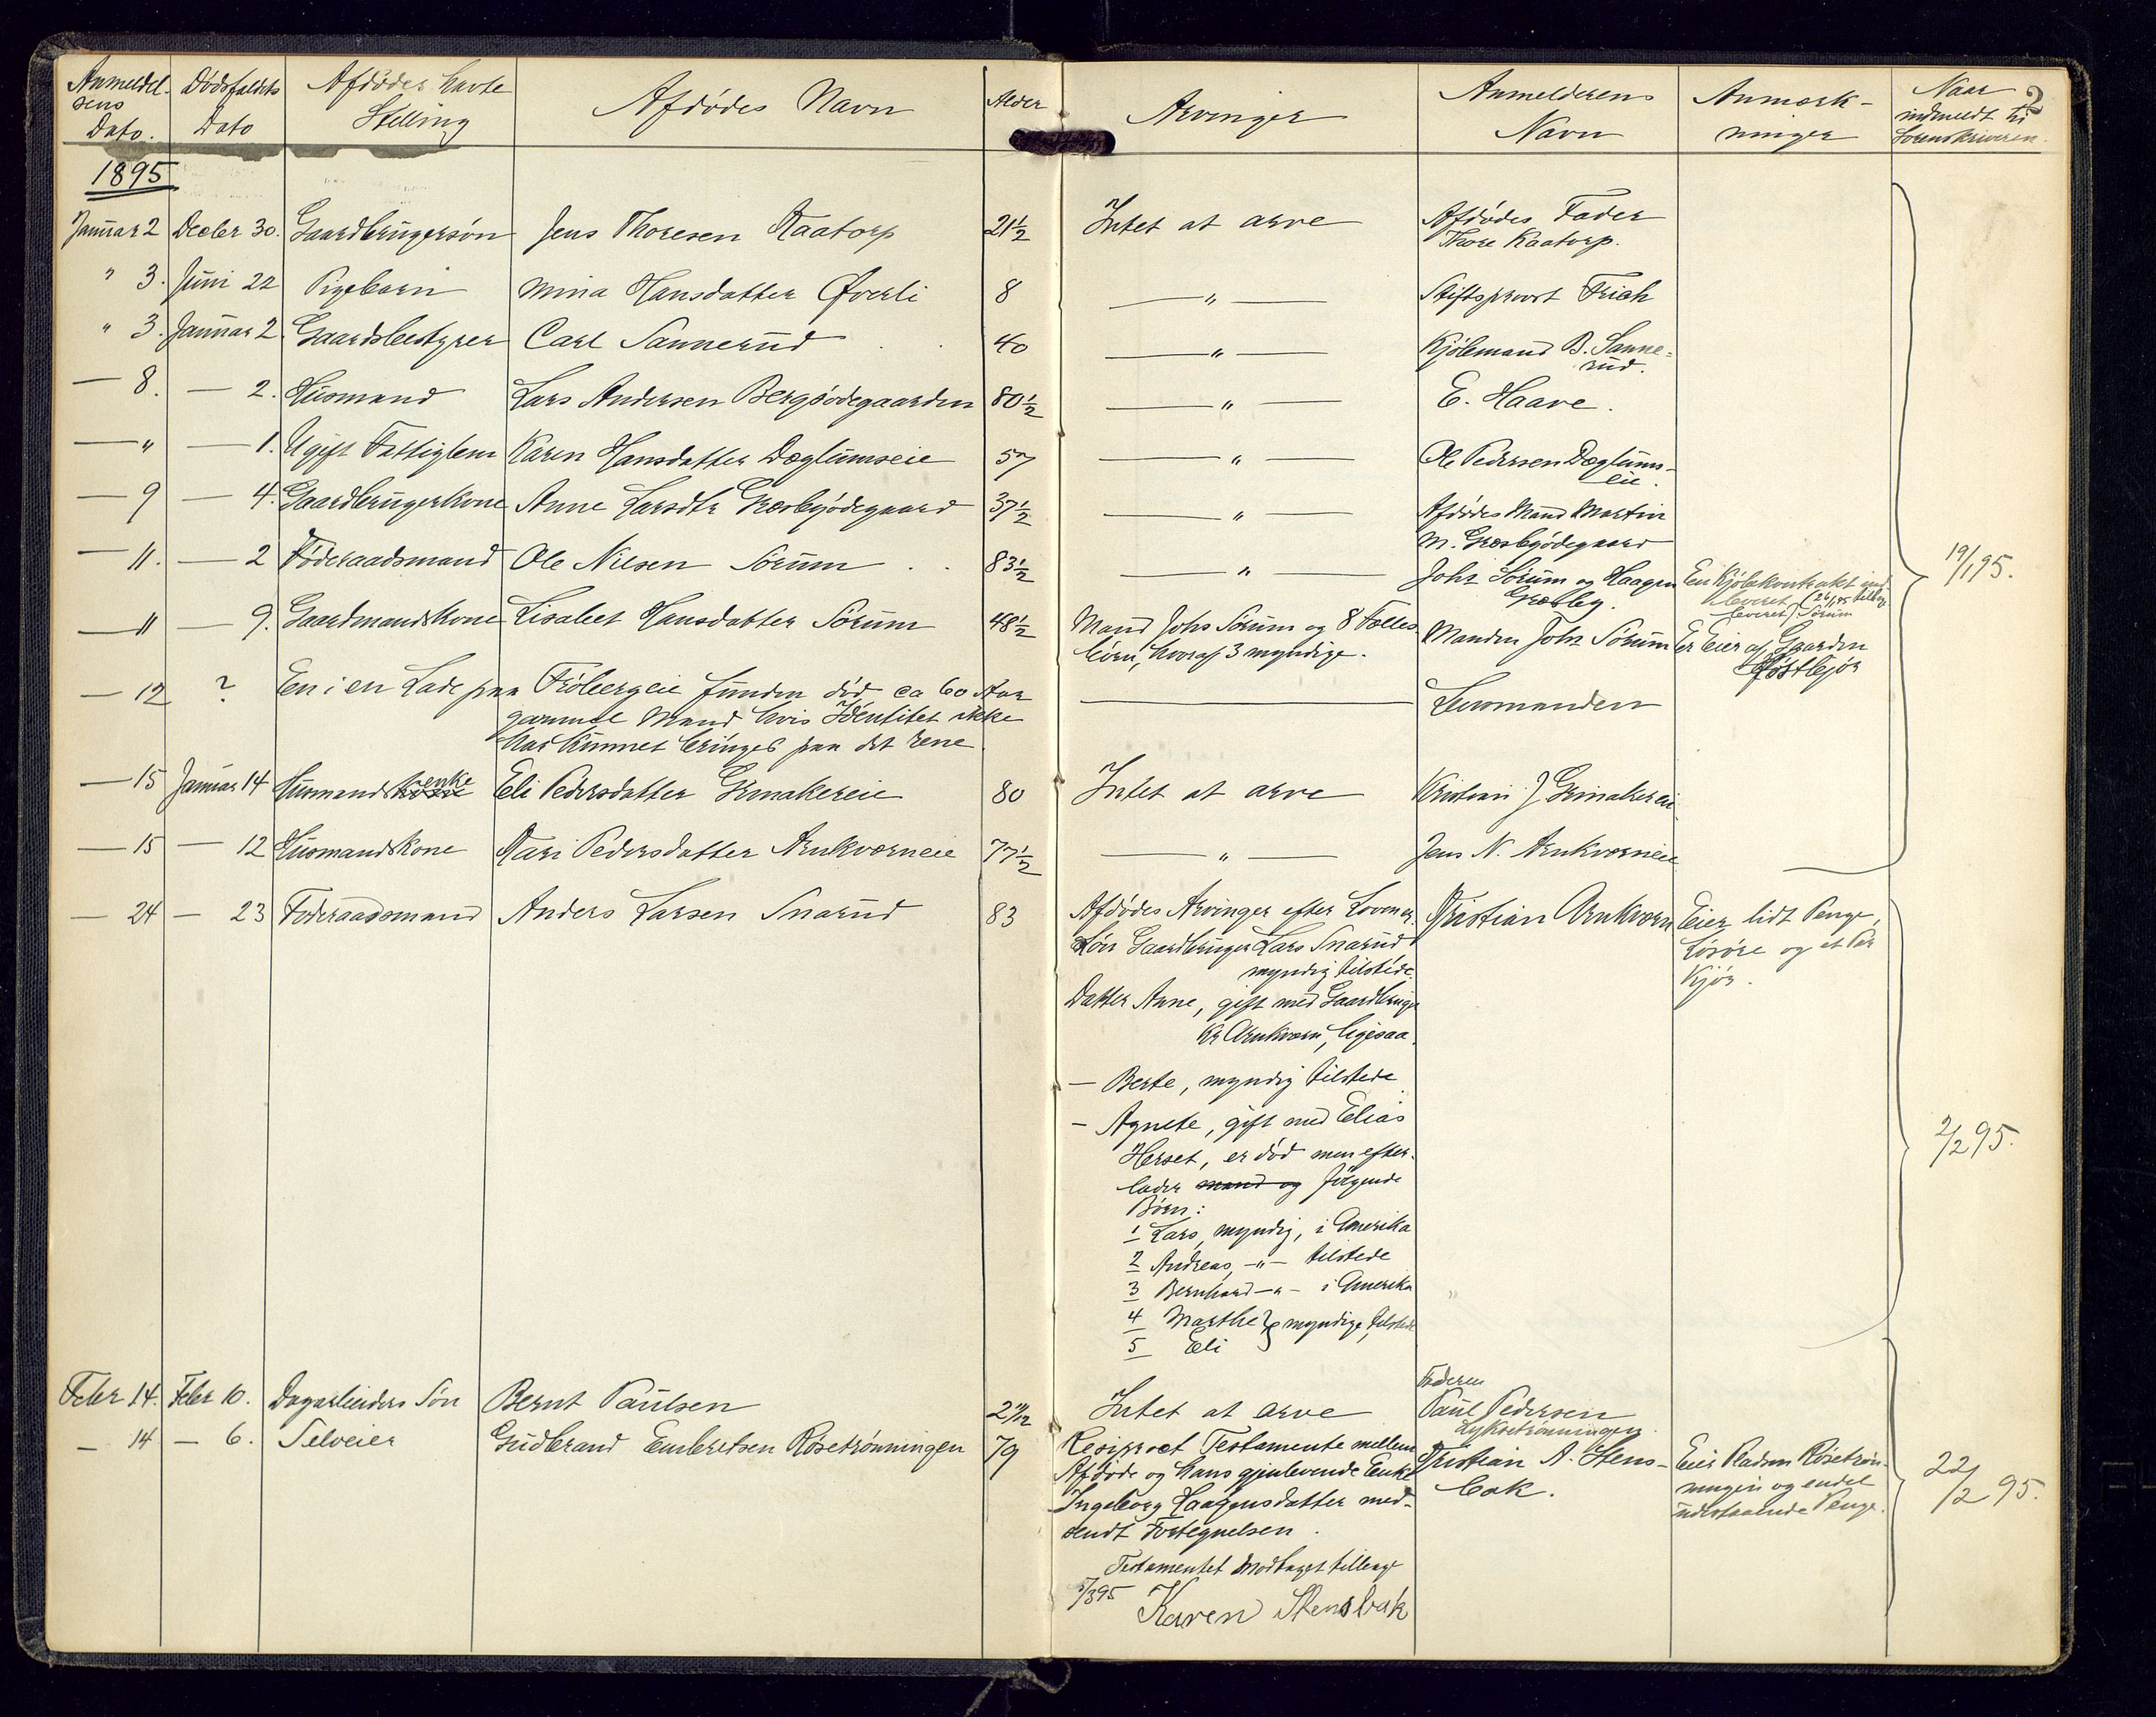 Anmeldel-
sens
Dato.
Dødsfaldets
Dato
Afdødes havte
Stilling
Afdødes Navn
Alder
Arvinger
Anmelderens
Navn
Anmærk-
ninger
Naar
indmeldt til
Sorenskriveren.
2
1895
Januar 2 Decbr 30. Gaardbrugersøn Jens Thoresen Kaatorp 21½ Intet at arve Afdødes Fader
Thore Kaatorp.
" 3. Juni 22 Pigebarn Mina Hansdatter Øverli 8 — " — Stiftsprovst Frich
" 3. Januar 2. Gaardsbestyrer Carl Sannerud 40 — " — Kjøbmand B. Sanne-
rud.
— 8. — 2. Husmand Lars Andersen Bergsødegaarden 80½ — " — E. Haave.
— " — 1. Ugift Fattiglem Karen Hansdatter Dæglumseie 57 — " — Ole Pedersen Dæglums-
eie.
— 9 — 4. Gaardbrugerkone Anne Larsdtr Græsbyødegaard 37½ — " — Afdødes Mand Martin
M. Græsbyødegaard
— 11. — 2 Føderaadsmand Ole Nilsen Sørum 83½ — " — Johs Sørum og Haagen
Græsby.
En Kjøbekontrakt ind
leveret
19/1 95.
— 11 — 9. Gaardmandskone Lisabet Hansdatter Sørum 48½ Mand Johs Sørum og 8 Fælles
børn, hvoraf 3 myndige.
Manden Johs Sørum Er Eier af Gaarden
— 12 ? En i en Lade paa Frøbergeie funden død ca 60 Aar
gammel Mand hvis Identitet ikke
har kunnet bringes paa det rene.
— Lensmanden
— 15 Januar 14 Husmandskone enke Eli Pedersdatter Grimakereie 80 Intet at arve Kristian J Grimakereie
— 15 — 12 Husmandskone Kari Pedersdatter Arnkværneie 77½ — " — Jens N. Arnkværneie
— 24 — 23 Føderaadsmand Anders Larsen Snarud 83 Afdødes Arvinger efter Loven er.
Kristian Arnkværn Eier lidt Penge,
Løsøre og et Par
Kjør.
Søn Gaardbruger Lars Snarud
myndig tilstede.
Datter Anne, gift med Gaardbruger
Kr Arnkværn, ligesaa.
— Berte, myndig tilstede
— Agnete, gift med Elias
Herset, er død men efter-
lader mand og følgende
Børn:
1 Lars, myndig, i Amerika
2 Andreas, -"- tilstede
3 Bernhard -"- i Amerika
4 Marthe } myndige, tilstede
5 Eli
2/2 95.
Febr 14. Febr 10. Dagarbeiders Søn Bernt Paulsen 2 Intet at arve Faderen
Paul Pedersen
— 14 — 6. Selveier Gudbrand Embretsen Røsetrønningen 79 Resiproct Testamente mellem
Afdøde og hans gjenlevende Enke
Ingeborg Haagensdatter med-
sendt Fortegnelsen.
Kristian A. Stens-
bak.
Eier Pladsen Røsetrøn-
ningen og endel
udestaaende Penge.
22/2 95.
Testamentet modtaget tilbage
/3 95 Karen Stensbak